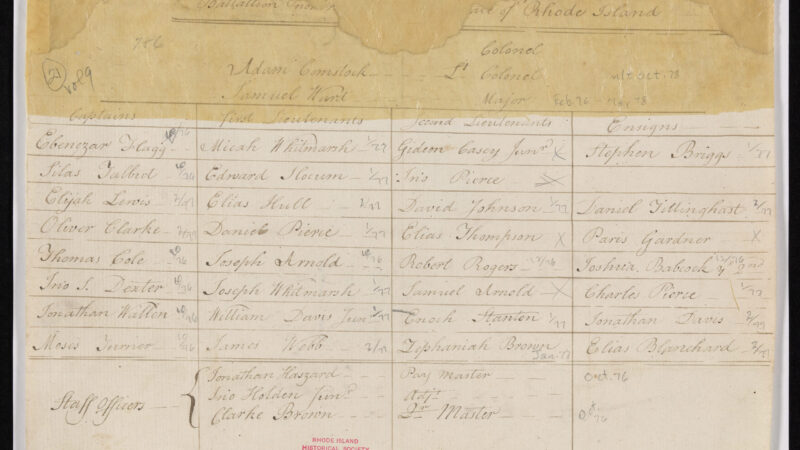 Battallion State of Rhode Island
786 Colonel
21 Adam Comstock Lt Colonel Oct. 78
Samuel Ward Major Feb 76 78
Captains First Lieutenants Second Lieutenants Ensigns
Ebenezar Flagg Micah Whitmarsh 1/77 Gideon Casey Junr X Stephen Briggs 1/77
Silas Talbud Edward Slocum 1/77 Jno Pierce X
Elijah Lewis 2/77 Elias Hull 1/77 David Johnson 1/77 Daniel Tillinghast 2/77
Oliver Clarke Daniel Pierce 1/77 Elias Thompson X Paris Gardner X
Thomas Cole Joseph Arnold Robert Rogers Joshua Babcock
Jno S. Dexter Joseph Whitmarsh 1/77 Samuel Arnold X Charles Pierce 1/77
Jonathan Wallen William Davis Junr Enoch Stanton 1/77 Jonathan Daves 2/77
Moses Turner James Webb 2/77 Zephaniah Brown Jan. 77 Elias Blanchard 2/77
Staff Officers
Jonathan Haszard Pay Master Oct. 76
Jno Holden Junr Adjt
Clarke Brown Qr Master
RHODE ISLAND
HISTORICAL SOCIETY